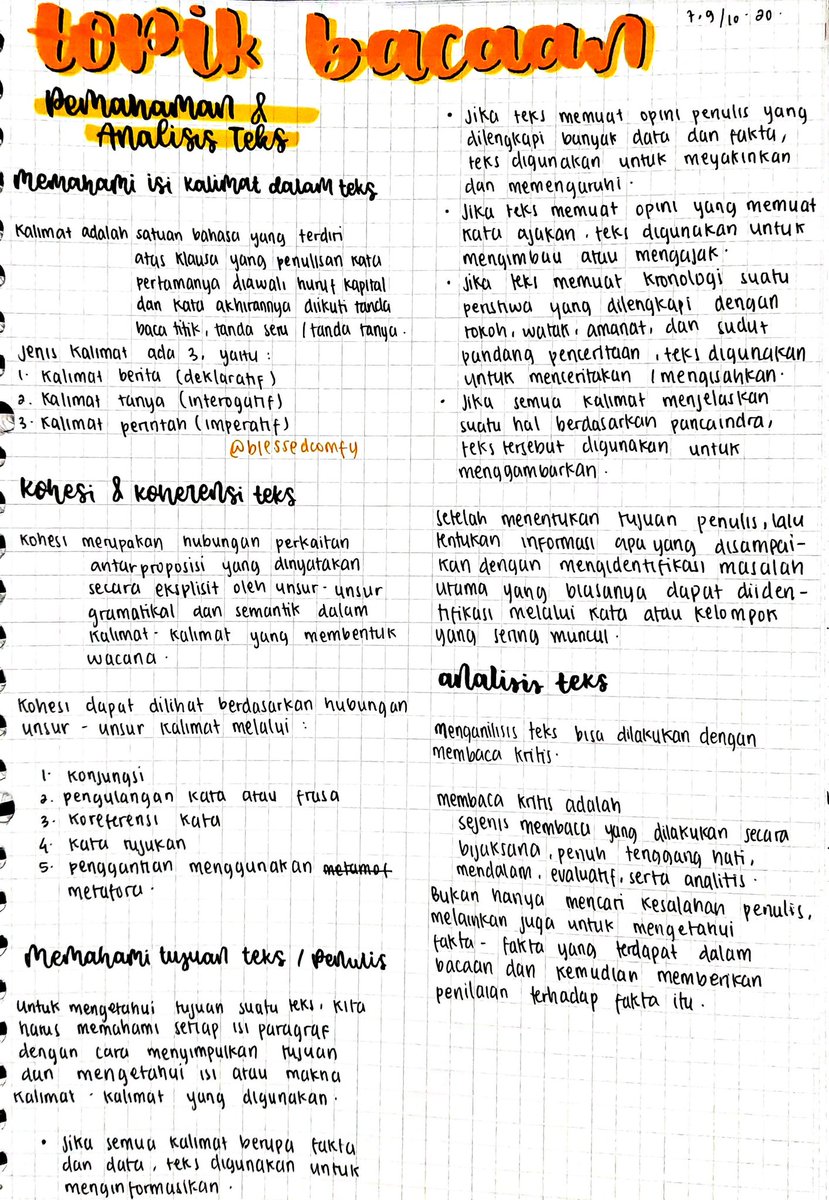 topik bacaan
7.9/10.20.
Pemahaman &
Analisis Teks
Memahami isi kalimat dalam teks
Kalimat adalah satuan bahasa yang terdiri
atas klausa yang penulisan kata
pertamanya diawali huruf kapital
dan kata akhirannya diikuti tanda
baca titik, tanda seru / tanda tanya.
Jenis kalimat ada 3, yaitu :
1. Kalimat berita (deklaratif)
2. Kalimat tanya (interogatif)
3. Kalimat perintah (imperatif)
@blessedcomfy
Kohesi & koherensi teks
Kohesi merupakan hubungan perkaitan
antarproposisi yang dinyatakan
secara eksplisit oleh unsur-unsur
gramatikal dan semantik dalam
kalimat-kalimat yang membentuk
wacana.
Kohesi dapat dilihat berdasarkan hubungan
unsur-unsur kalimat melalui :
1. konjungsi
2. pengulangan kata atau frasa
3. koreferensi kata
4. kata rujukan
5. penggantian menggunakan metamof
metafora.
Memahami tujuan teks / penulis
untuk mengetahui tujuan suatu teks, kita
harus memahami setiap isi paragraf
dengan cara menyimpulkan tujuan
dan mengetahui isi atau makna
kalimat-kalimat yang digunakan.
• Jika semua kalimat berupa fakta
dan data, teks digunakan untuk
menginformasikan.
• Jika teks memuat opini penulis yang
dilengkapi banyak data dan fakta,
teks digunakan untuk meyakinkan
dan memengaruhi.
• Jika teks memuat opini yang memuat
kata ajakan, teks digunakan untuk
mengimbau atau mengajak.
• Jika teks memuat kronologi suatu
peristiwa yang dilengkapi dengan
tokoh, watak, amanat, dan sudut
pandang penceritaan, teks digunakan
untuk menceritakan / mengisahkan.
• Jika semua kalimat menjelaskan
suatu hal berdasarkan pancaindra,
teks tersebut digunakan untuk
menggambarkan.
setelah menentukan tujuan penulis, lalu
tentukan informasi apa yang disampai-
kan dengan mengidentifikasi masalah
utama yang biasanya dapat diiden-
tifikasi melalui kata atau kelompok
yang sering muncul.
analisis teks
menganilisis teks bisa dilakukan dengan
membaca kritis.
membaca kritis adalah
sejenis membaca yang dilakukan secara
bijaksana, penuh tenggang hati,
mendalam, evaluatif, serta analitis.
Bukan hanya mencari kesalahan penulis,
melainkan juga untuk mengetahui
fakta-fakta yang terdapat dalam
bacaan dan kemudian memberikan
penilaian terhadap fakta itu.